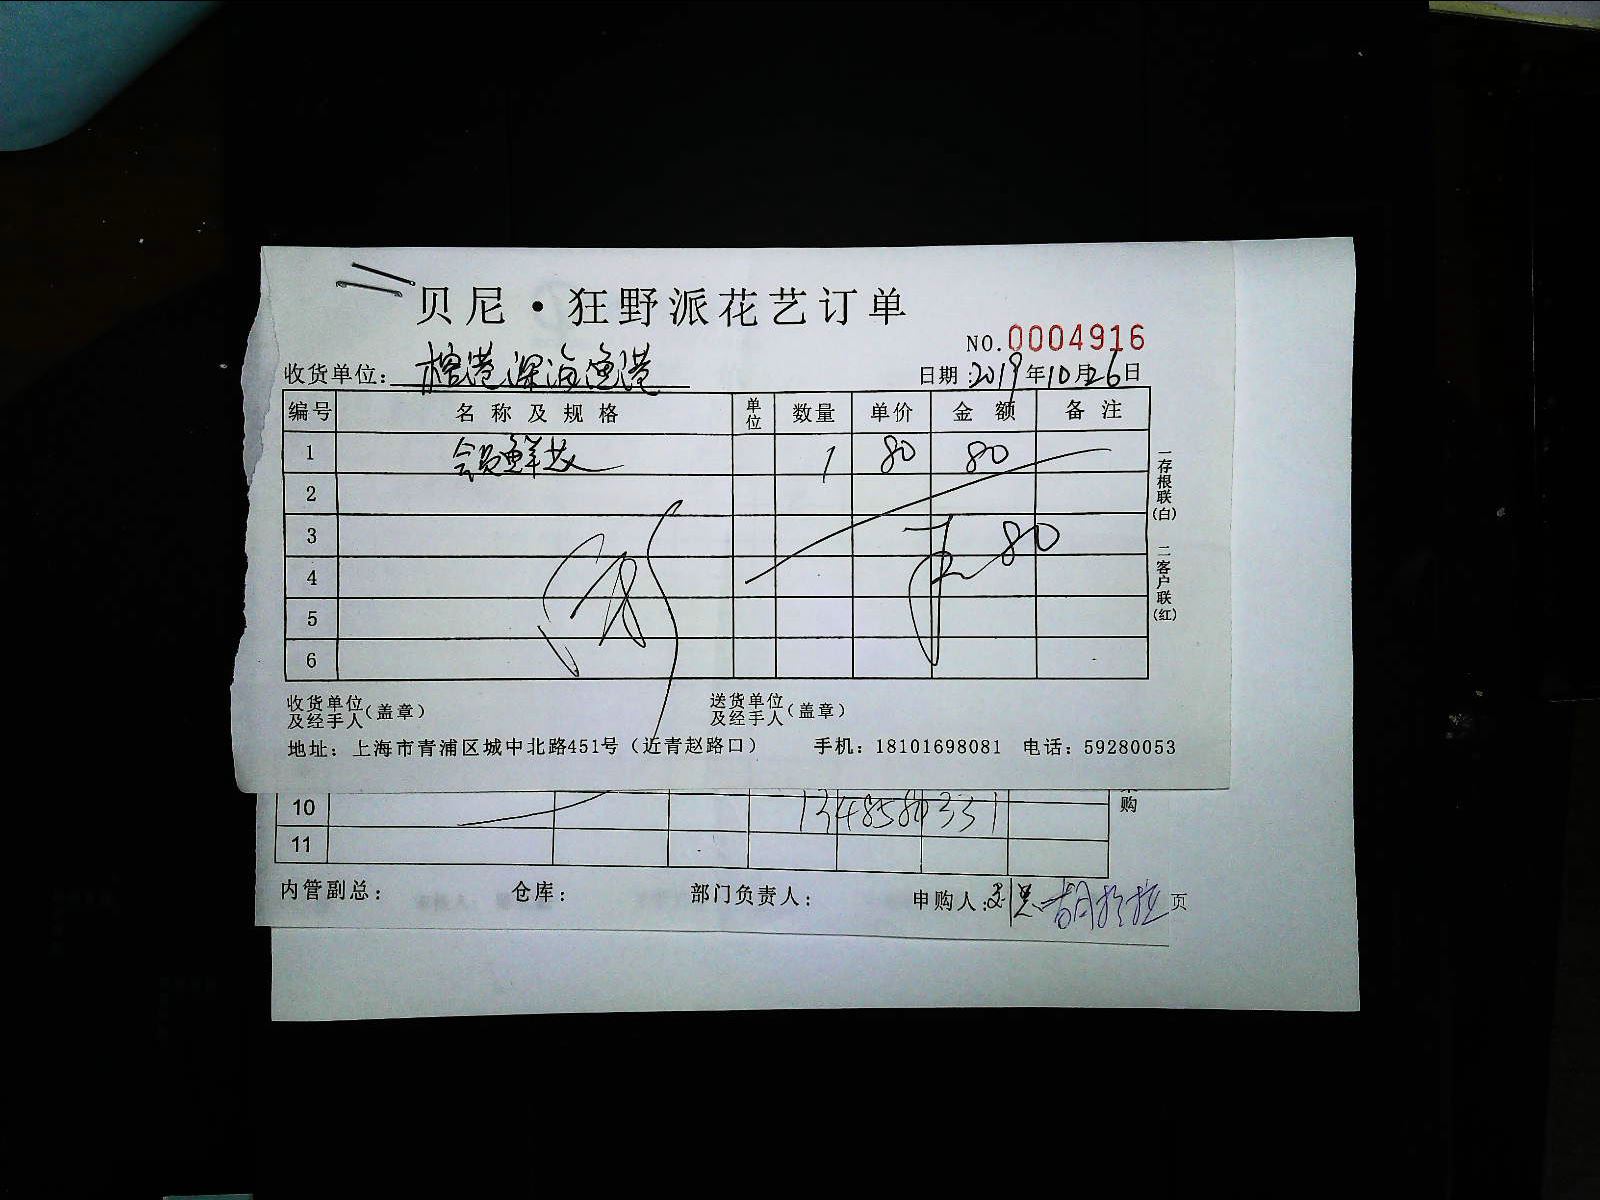 贝尼·狂野派花艺订单
NO.0004916
收货单位：榕港深海渔港
日期：2019年10月26日
编号 名称及规格 单位 数量 单价 金额 备注
1 会员鲜花 1 80 80
2
3 80
4
5
6
一存根联(白) 二客户联(红)
收货单位及经手人(盖章)
送货单位及经手人(盖章)
地址：上海市青浦区城中北路451号（近青赵路口） 手机：18101698081 电话：59280053
10 1348580331
购
11
内管副总： 仓库： 部门负责人： 申购人： 页